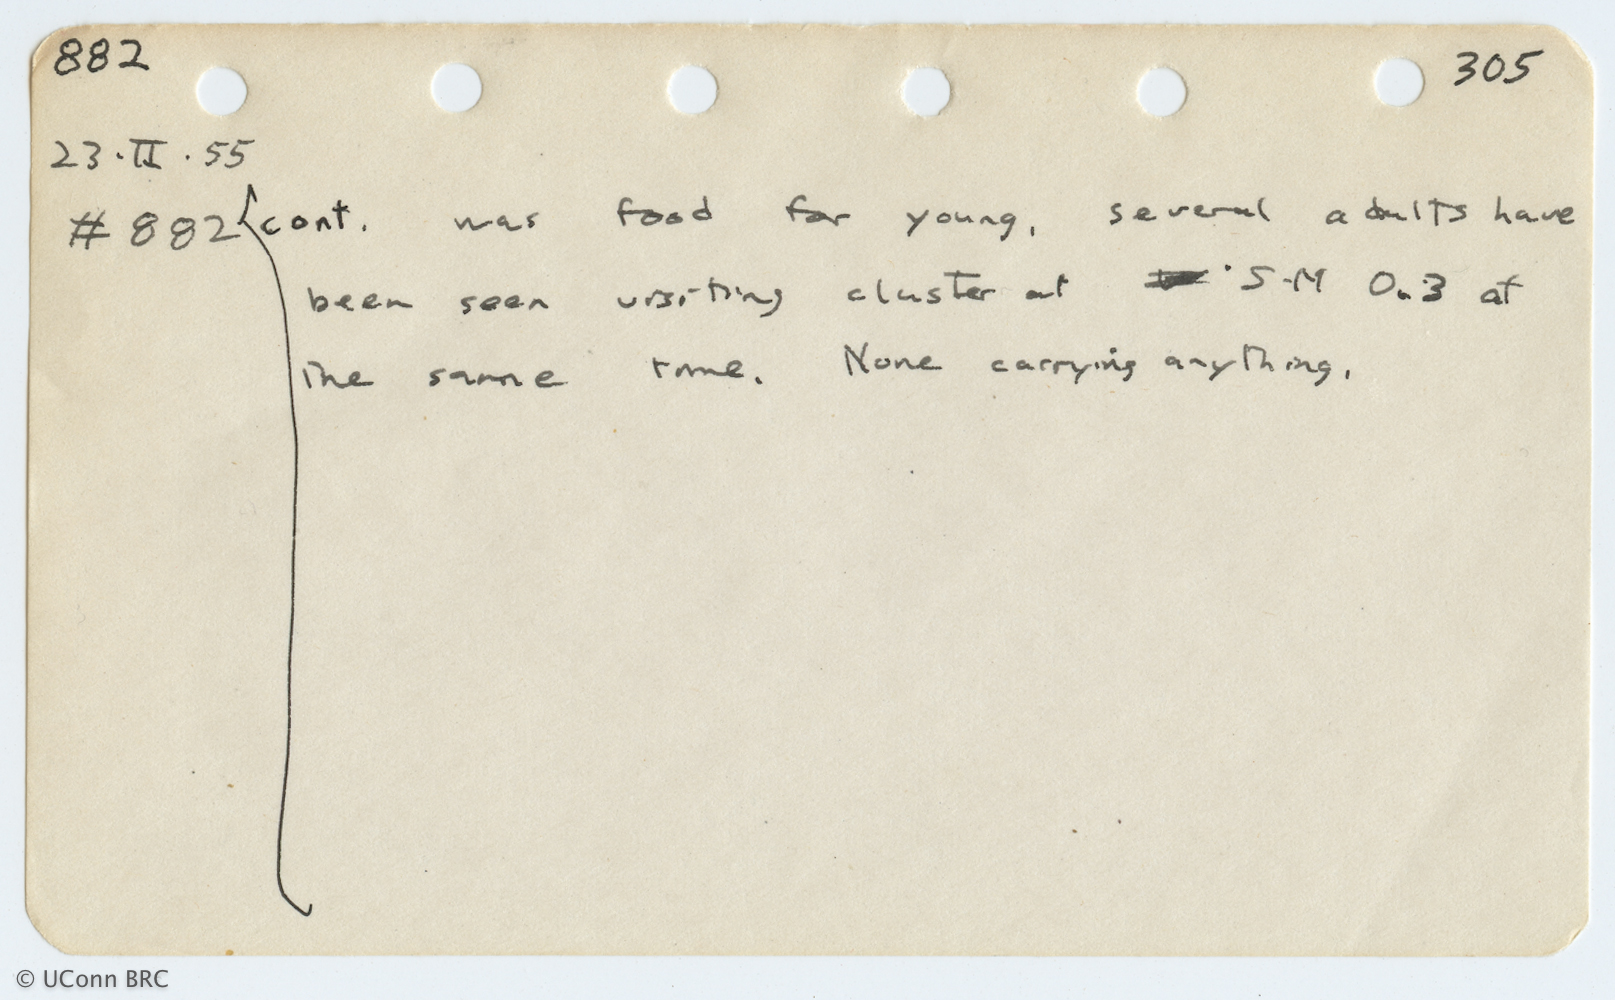 882
305
23·II·55
#882 cont. was food for young, several adults have
been seen visiting cluster at S-M 0.3 at
the same time. None carrying anything.
© UConn BRC